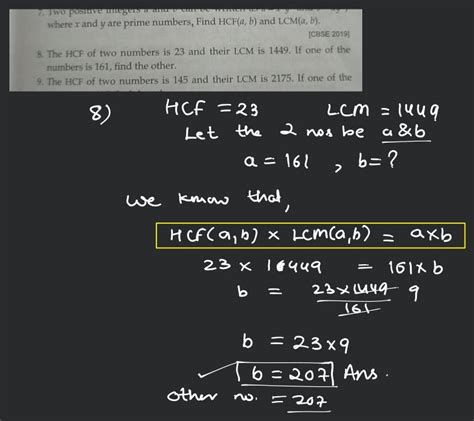 7. Two positive integers a and b can be written as
where x and y are prime numbers, Find HCF(a, b) and LCM(a, b).
[CBSE 2019]
8. The HCF of two numbers is 23 and their LCM is 1449. If one of the
numbers is 161, find the other.
9. The HCF of two numbers is 145 and their LCM is 2175. If one of the
8) HCF = 23 LCM = 1449
Let the 2 nos be a & b
a = 161 , b = ?
We know that,
HCF(a,b) × LCM(a,b) = a×b
23 × 1449 = 161 × b
b = 23×1449 9
161
b = 23×9
b = 207 Ans.
other no. = 207